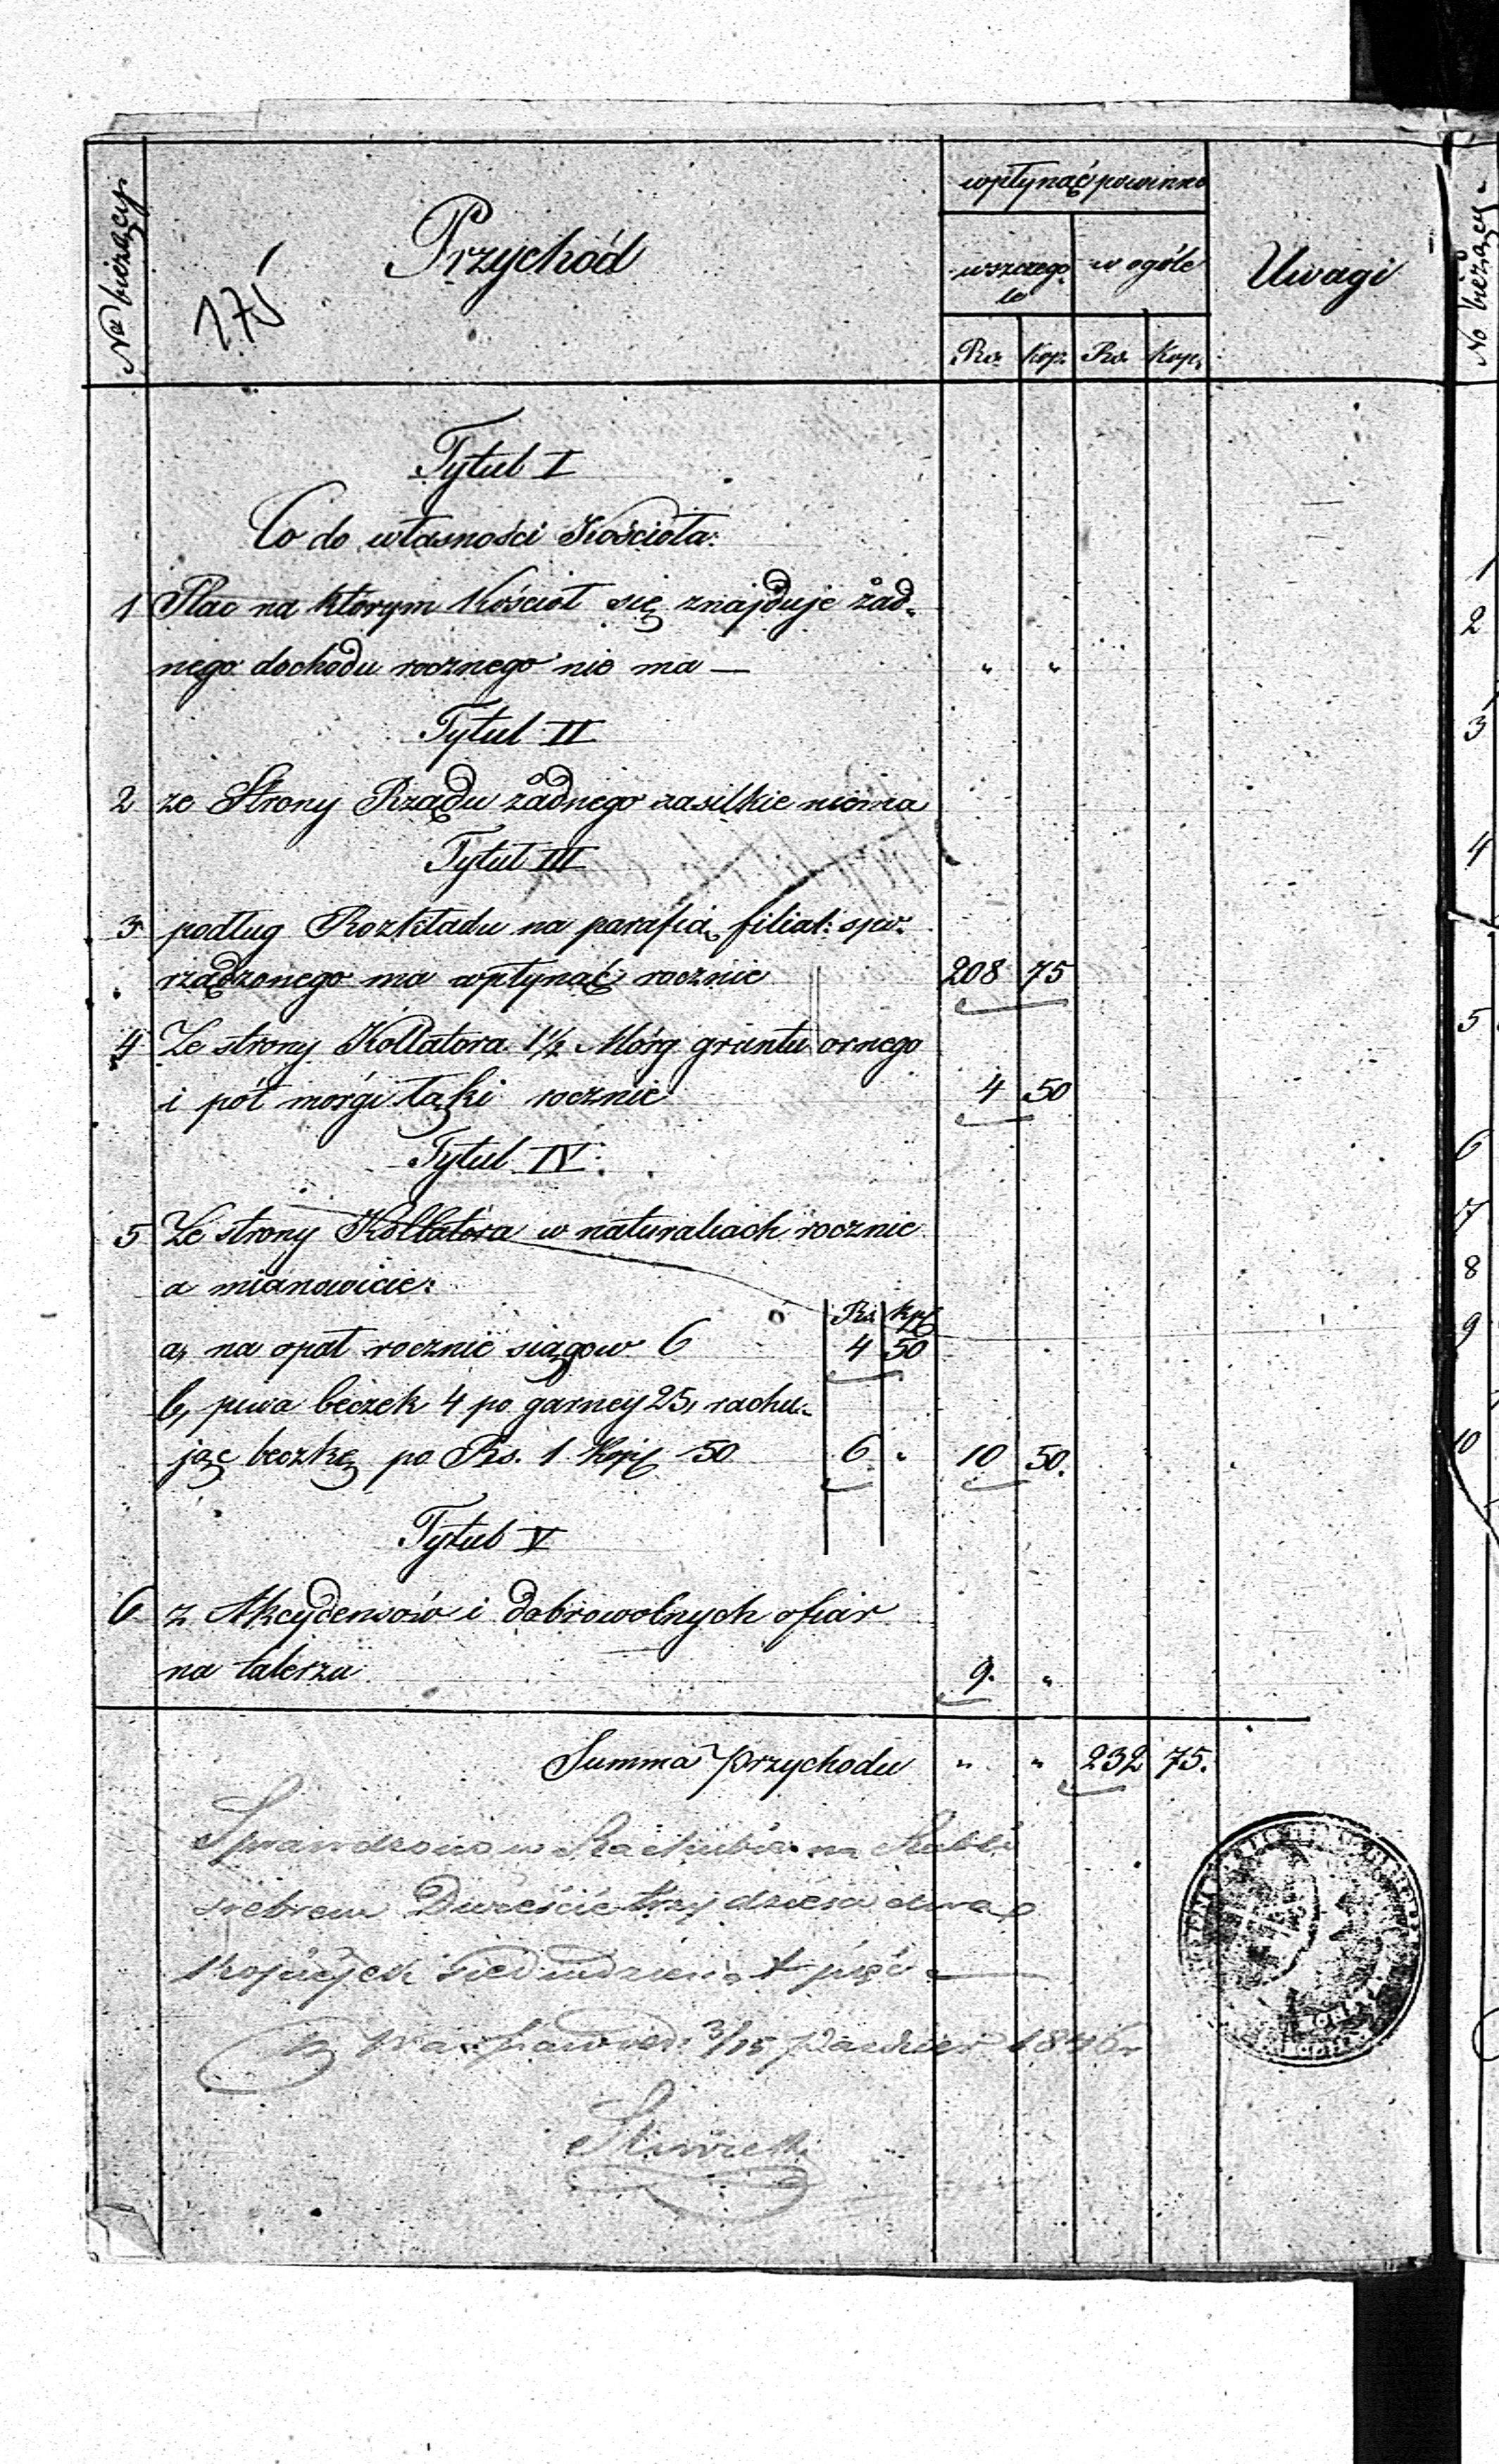 No bieżący.
175
Przychód
wpłynąć powinno
wszczego-
le
w ogóle
Uwagi
Rs. Kop. Rs. Kop.
Tytuł I
Co do własności Kościoła:
1 Plac na którym Kościół się znajduje żad-
nego dochodu rocznego nie ma — " "
Tytuł II
2 ze Strony Rządu żadnego zasiłkie niema
Tytuł III
3 podług Rozkładu na parafią filial: spo-
rządzonego ma wpłynąć rocznie 208 75
4 Ze strony Kollatora 1½ Mórg gruntu ornego
i pół morgi łąki rocznie 4 50
Tytuł IV.
5 Ze strony Kollatora w naturaliach rocznie
a mianowicie:
Rs. kop.
a, na opał rocznie siągow 6 4 50
b, piwa beczek 4 po garncy 25, rachu-
jąc beczkę po Rs. 1 kop. 50 6 " 10 50.
Tytuł V
6 z Akcydensów i dobrowolnych ofiar
na talerzu 9. "
Summa przychodu " " 232 75.
Sprawdzono w Rachubie na Rubli
srebrem Dwieście trzydzieści dwa
kopiejek siedmdziesiąt pięć —
3/15 1846
No bieżący
1
2
3
4
5
6
7
8
9
10